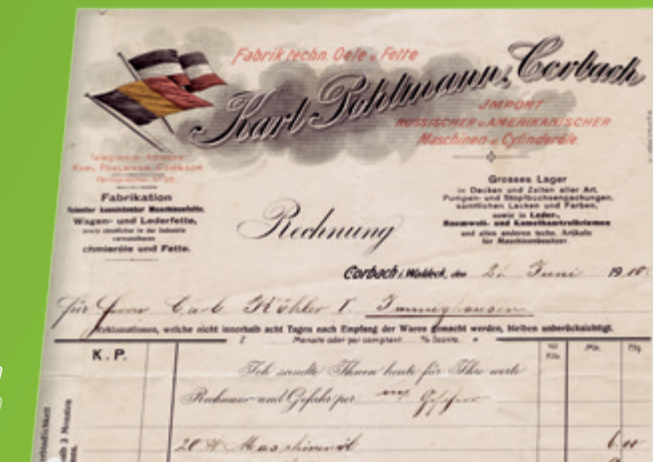 Fabrik techn. Oele u. Fette
Karl Pohlmann, Corbach
IMPORT
RUSSISCHER u. AMERIKANISCHER
Maschinen- u. Cylinderöle.
Telegramm-Adresse:
KARL POHLMANN, CORBACH
Fabrikation
feinster konsistenter Maschinenfette,
Wagen- und Lederfette,
sowie sämtlicher in der Industrie
verwendbaren
chmieröle und Fette.
Grosses Lager
in Decken und Zelten aller Art,
Pumpen- und Stopfbuchsenpackungen,
sämtlichen Lacken und Farben,
sowie in Leder-,
Baumwoll- und Kamelhaartreibriemen
und allen anderen techn. Artikeln
für Maschinenbesitzer.
Rechnung
Corbach i. Waldeck, den 2. Juni 1910.
für Herrn Carl Köhler V. Immighausen
Reklamationen, welche nicht innerhalb acht Tagen nach Empfang der Waren gemacht werden, bleiben unberücksichtigt.
Z Monate oder per comptant % Sconto.
K. P.
Mk. Pfg.
Ich sandte Ihnen heute für Ihre werte
Rechnung und Gefahr per
20 Maschinenöl